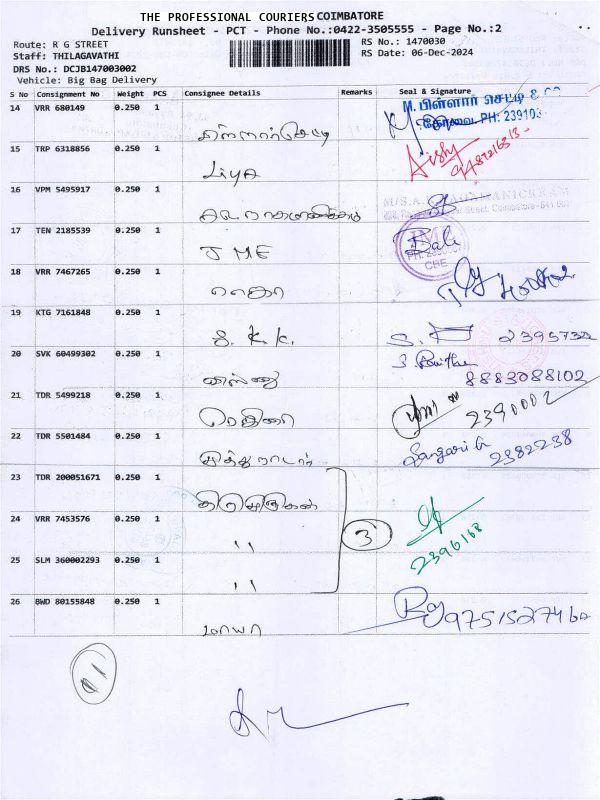 THE PROFESSIONAL COURIERS COIMBATORE
Delivery Runsheet - PCT - Phone No.:0422-3505555 - Page No.:2
Route: R G STREET
RS No.: 1470030
Staff: THILAGAVATHI
RS Date: 06-Dec-2024
DRS No.: DCJB147003002
Vehicle: Big Bag Delivery
S No Consignment No Weight PCS Consignee Details Remarks Seal & Signature
14 VRR 680149 0.250 1
M. பிள்ளார் செட்டி & co
கோவை. PH: 23910
15 TRP 6318856 0.250 1 Liya Aishy
16 VPM 5495917 0.250 1
17 TEN 2185539 0.250 1 JME Bali
CBE
18 VRR 7467265 0.250 1
19 KTG 7161848 0.250 1 S. K. K. 2395732
20 SVK 60499302 0.250 1 விஷ்ணு
8883088102
21 TDR 5499218 0.250 1 2390002
22 TDR 5501484 0.250 1 முத்து நாடார் 2382238
23 TDR 200051671 0.250 1
24 VRR 7453576 0.250 1 " 3 2396168
25 SLM 360002293 0.250 1 "
26 BWD 80155848 0.250 1 மாயா